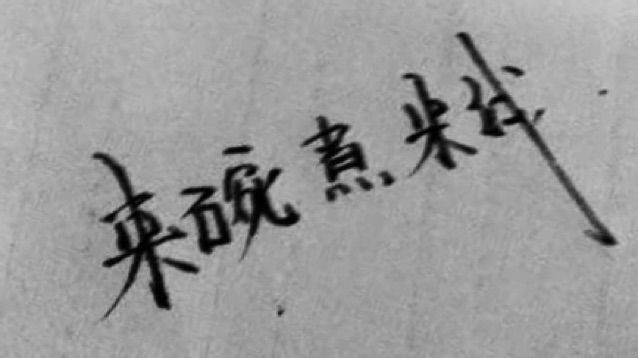 来碗煮米线